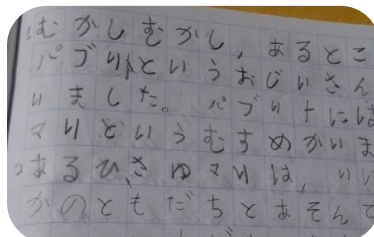 むかしむかし、あるとこ
パブリトというおじいさん
いました。パブリトには
マリというむすめがいま
2 あるひ、さゆマリは、いい
かのともだちとあそんで